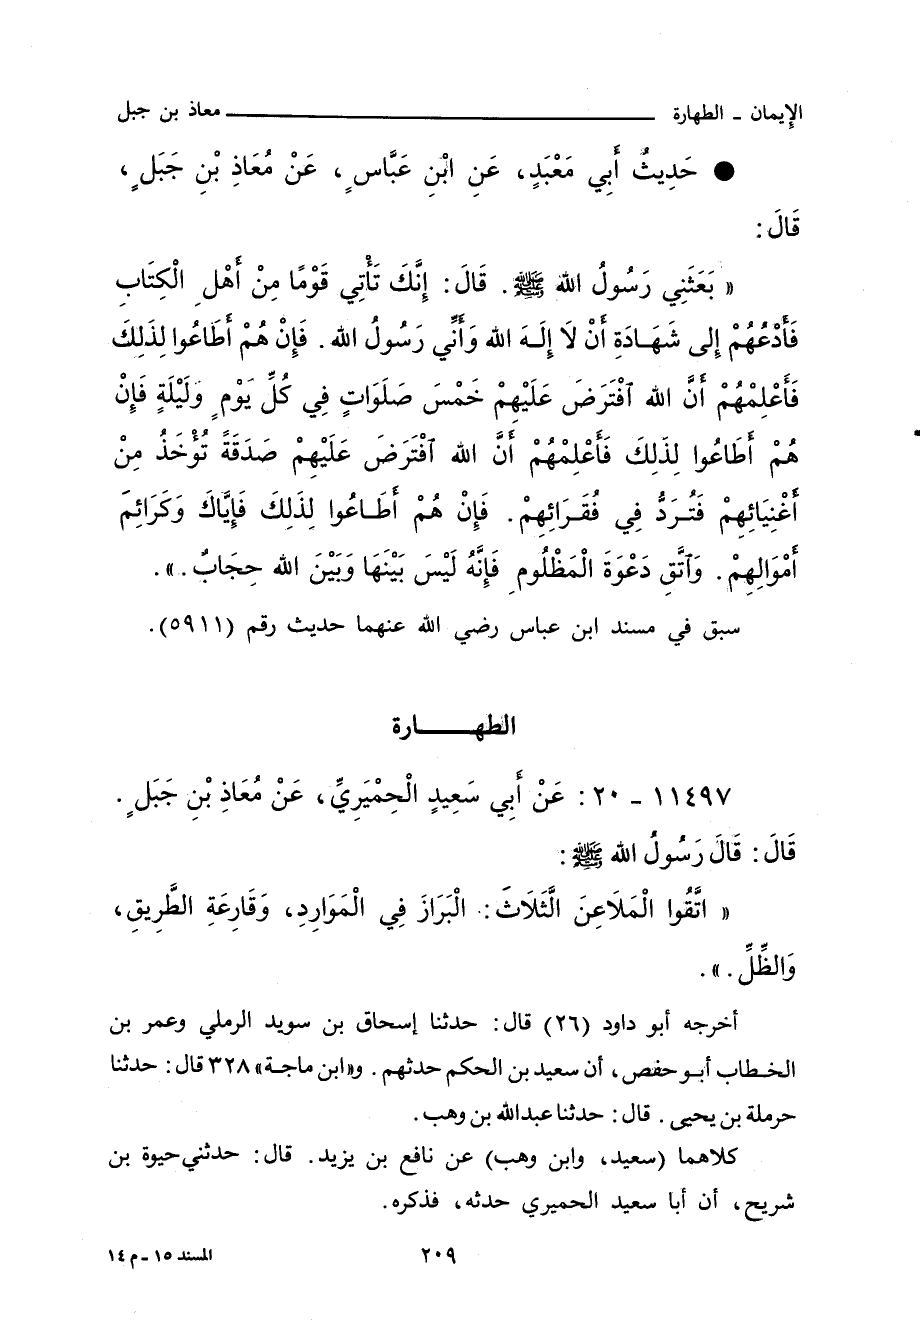 الإيمان - الطهارة ـــــــــــــــــــــــــ معاذ بن جبل
● حَدِيثُ أَبِي مَعْبَدٍ، عَنِ ابْنِ عَبَّاسٍ، عَنْ مُعَاذِ بْنِ جَبَلٍ،
قَالَ:
« بَعَثَنِي رَسُولُ اللهِ ﷺ. قَالَ: إِنَّكَ تَأْتِي قَوْمًا مِنْ أَهْلِ الْكِتَابِ
فَأَدْعُهُمْ إِلى شَهَادَةِ أَنْ لَا إِلَهَ اللهَ وَأَنِّي رَسُولُ الله. فَإِنْ هُمْ أَطَاعُوا لِذَلِكَ
فَأَعْلِمْهُمْ أَنَّ الله ٱفْتَرَضَ عَلَيْهِمْ خَمْسَ صَلَوَاتٍ فِي كُلِّ يَوْمٍ وَلَيْلَةٍ فَإِنْ
هُمْ أَطَاعُوا لِذَلِكَ فَأَعْلِمْهُمْ أَنَّ الله ٱفْتَرَضَ عَلَيْهِمْ صَدَقَةً تُؤْخَذُ مِنْ
أَغْنِيَائِهِمْ فَتُرَدُّ فِي فُقَرَائِهِمْ. فَإِنْ هُمْ أَطَاعُوا لِذَلِكَ فَإِيَّاكَ وَكَرَائِمَ
أَمْوَالِهِمْ. وَٱتَّقِ دَعْوَةَ الْمَظْلُومِ فَإِنَّهُ لَيْسَ بَيْنَهَا وَبَيْنَ الله حِجَابٌ.».
سبق في مسند ابن عباس رضي الله عنهما حديث رقم (٥٩١١).
الطهـــــارة
١١٤٩٧ - ٢٠: عَنْ أَبِي سَعِيدٍ الْحِمْيَرِيِّ، عَنْ مُعَاذِ بْنِ جَبَلٍ.
قَالَ: قَالَ رَسُولُ الله ﷺ:
« اتَّقُوا الْمَلَاعِنَ الثَّلَاثَ: الْبَرَازَ فِي الْمَوَارِدِ، وَقَارِعَةِ الطَّرِيقِ،
وَالظِّلِّ.».
أخرجه أبو داود (٢٦) قال: حدثنا إسحاق بن سويد الرملي وعمر بن
الخطاب أبو حفص، أن سعيد بن الحكم حدثهم. و«ابن ماجة» ٣٢٨ قال: حدثنا
حرملة بن يحيى. قال: حدثنا عبدالله بن وهب.
كلاهما (سعيد، وابن وهب) عن نافع بن يزيد. قال: حدثني حيوة بن
شريح، أن أبا سعيد الحميري حدثه، فذكره.
٢٠٩
المسند ١٥ - م ١٤